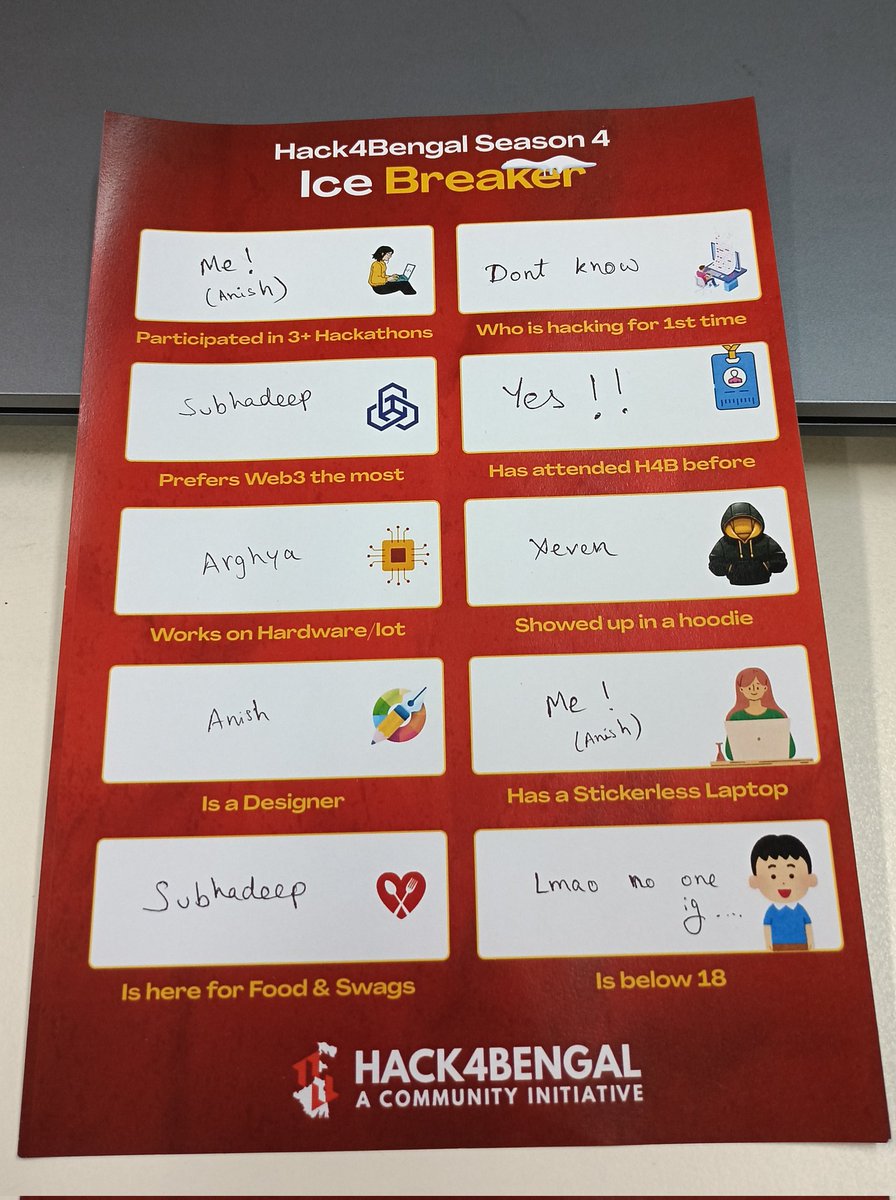 Hack4Bengal Season 4
Ice Breaker
Me!
(Anish)
Participated in 3+ Hackathons
Dont know
Who is hacking for 1st time
Subhadeep
Prefers Web3 the most
Yes!!
Has attended H4B before
Arghya
Works on Hardware/Iot
Showed up in a hoodie
Anish
Is a Designer
Me!
(Anish)
Has a Stickerless Laptop
Subhadeep
Is here for Food & Swags
Lmao no one
ig....
Is below 18
HACK4BENGAL
A COMMUNITY INITIATIVE